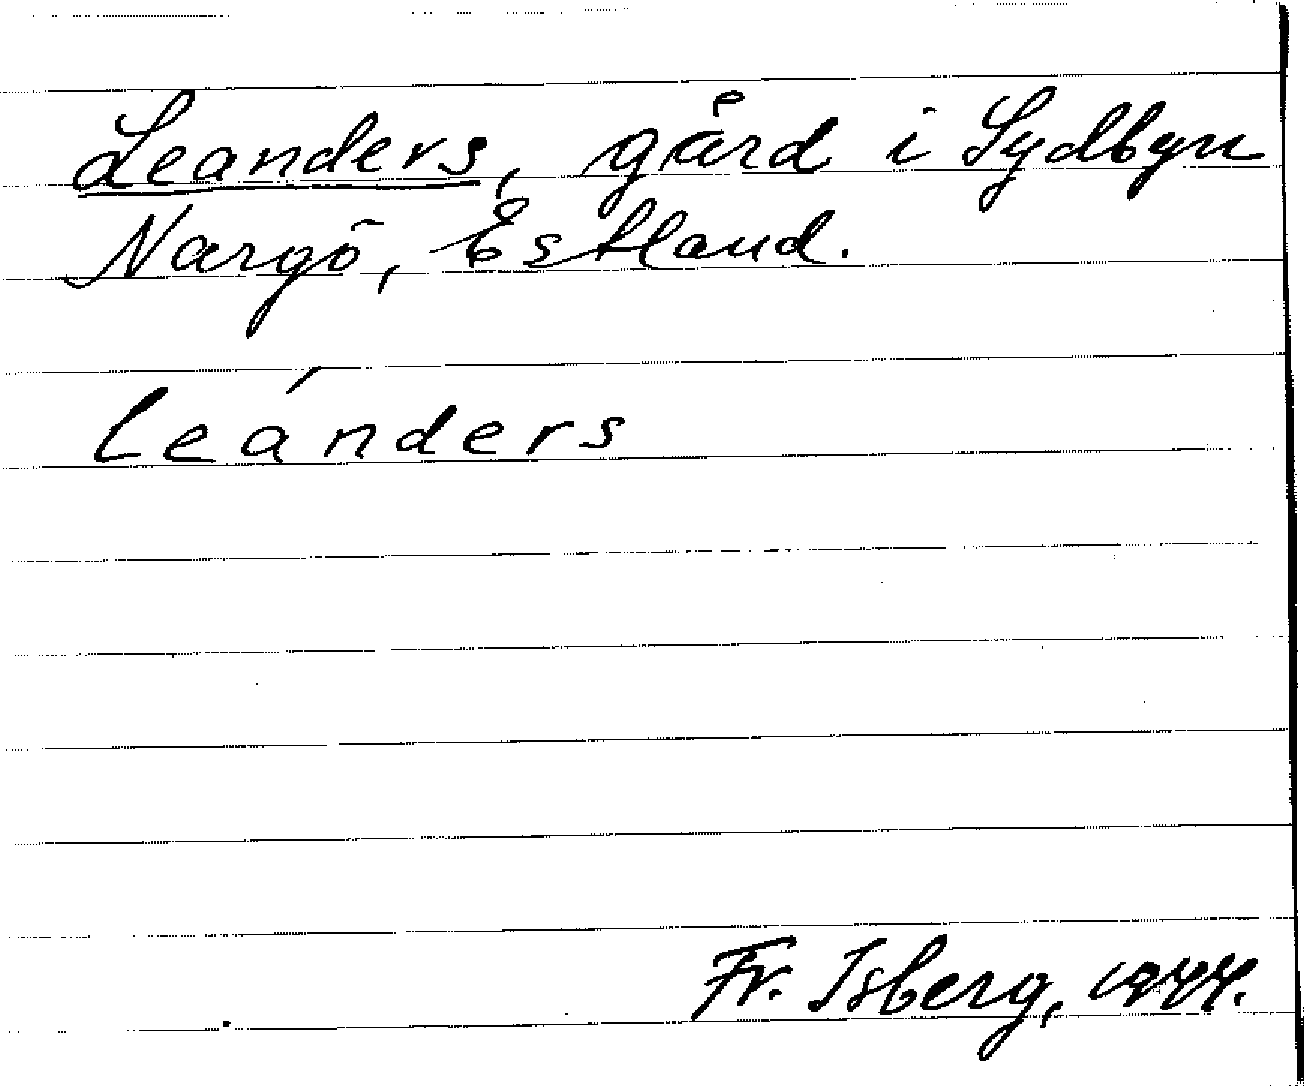 Leanders, gård i Sydbyn
Nargö, Estland.
Leánders
Fr. Isberg, 1944.